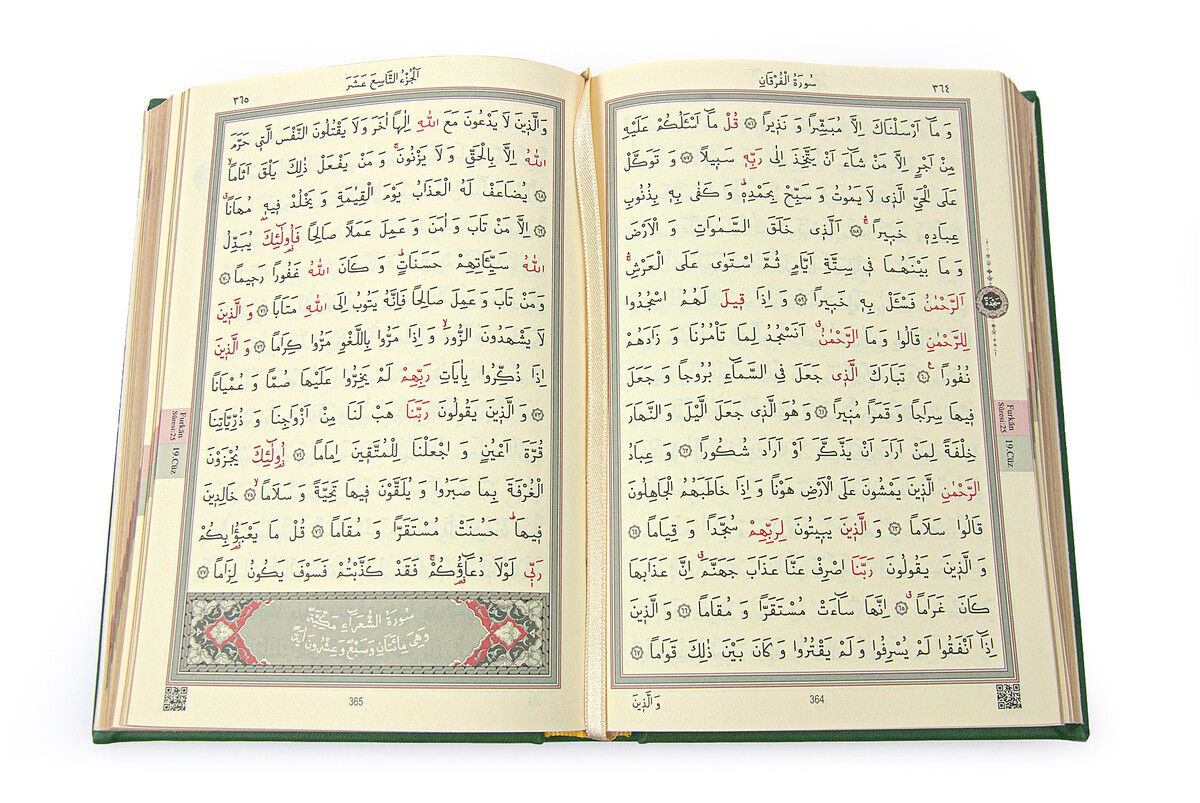 سُورَةُ الْفُرْقَانِ
٣٦٤
وَ مَٓا اَرْسَلْنَاكَ اِلَّا مُبَشِّرًا وَ نَذٖيرًا ۝٥٦ قُلْ مَٓا اَسْـَٔلُكُمْ عَلَيْهِ
مِنْ اَجْرٍ اِلَّا مَنْ شَٓاءَ اَنْ يَتَّخِذَ اِلٰى رَبِّهٖ سَبٖيلًا ۝٥٧ وَ تَوَكَّلْ
عَلَى الْحَيِّ الَّذٖى لَا يَمُوتُ وَ سَبِّحْ بِحَمْدِهٖؕ وَ كَفٰى بِهٖ بِذُنُوبِ
عِبَادِهٖ خَبٖيرًاۚ ۝٥٨ اَلَّذٖى خَلَقَ السَّمٰوَاتِ وَ الْاَرْضَ
وَ مَا بَيْنَهُمَا فٖى سِتَّةِ اَيَّامٍ ثُمَّ اسْتَوٰى عَلَى الْعَرْشِۚ
اَلرَّحْمٰنُ فَسْـَٔلْ بِهٖ خَبٖيرًا ۝٥٩ وَ اِذَا قٖيلَ لَهُمُ اسْجُدُوا
لِلرَّحْمٰنِ قَالُوا وَ مَا الرَّحْمٰنُۗ اَنَسْجُدُ لِمَا تَاْمُرُنَا وَ زَادَهُمْ
نُفُورًا ۝٦٠ تَبَارَكَ الَّذٖى جَعَلَ فِى السَّمَٓاءِ بُرُوجًا وَ جَعَلَ
فٖيهَا سِرَاجًا وَ قَمَرًا مُنٖيرًا ۝٦١ وَ هُوَ الَّذٖى جَعَلَ الَّيْلَ وَ النَّهَارَ
خِلْفَةً لِمَنْ اَرَادَ اَنْ يَذَّكَّرَ اَوْ اَرَادَ شُكُورًا ۝٦٢ وَ عِبَادُ
الرَّحْمٰنِ الَّذٖينَ يَمْشُونَ عَلَى الْاَرْضِ هَوْنًا وَ اِذَا خَاطَبَهُمُ الْجَاهِلُونَ
قَالُوا سَلَامًا ۝٦٣ وَ الَّذٖينَ يَبٖيتُونَ لِرَبِّهِمْ سُجَّدًا وَ قِيَامًا ۝٦٤
وَ الَّذٖينَ يَقُولُونَ رَبَّنَا اصْرِفْ عَنَّا عَذَابَ جَهَنَّمَۗ اِنَّ عَذَابَهَا
كَانَ غَرَامًاۗ ۝٦٥ اِنَّهَا سَٓاءَتْ مُسْتَقَرًّا وَ مُقَامًا ۝٦٦ وَ الَّذٖينَ
اِذَٓا اَنْفَقُوا لَمْ يُسْرِفُوا وَ لَمْ يَقْتُرُوا وَ كَانَ بَيْنَ ذٰلِكَ قَوَامًا ۝٦٧
وَ الَّذٖينَ
364
سَجْدَة
Furkân
Sûresi:25
19.Cüz
اَلْجُزْءُ التَّاسِعَ عَشَرَ
٣٦٥
وَ الَّذٖينَ لَا يَدْعُونَ مَعَ اللّٰهِ اِلٰهًا اٰخَرَ وَ لَا يَقْتُلُونَ النَّفْسَ الَّتٖى حَرَّمَ
اللّٰهُ اِلَّا بِالْحَقِّ وَ لَا يَزْنُونَۚ وَ مَنْ يَفْعَلْ ذٰلِكَ يَلْقَ اَثَامًاۙ
۝٦٨ يُضَاعَفْ لَهُ الْعَذَابُ يَوْمَ الْقِيٰمَةِ وَ يَخْلُدْ فٖيهٖ مُهَانًاۗ
۝٦٩ اِلَّا مَنْ تَابَ وَ اٰمَنَ وَ عَمِلَ عَمَلًا صَالِحًا فَاُولٰٓئِكَ يُبَدِّلُ
اللّٰهُ سَيِّـَٔاتِهِمْ حَسَنَاتٍؕ وَ كَانَ اللّٰهُ غَفُورًا رَحٖيمًا ۝٧٠
وَ مَنْ تَابَ وَ عَمِلَ صَالِحًا فَاِنَّهُ يَتُوبُ اِلَى اللّٰهِ مَتَابًا ۝٧١ وَ الَّذٖينَ
لَا يَشْهَدُونَ الزُّورَۙ وَ اِذَا مَرُّوا بِاللَّغْوِ مَرُّوا كِرَامًا ۝٧٢ وَ الَّذٖينَ
اِذَا ذُكِّرُوا بِاٰيَاتِ رَبِّهِمْ لَمْ يَخِرُّوا عَلَيْهَا صُمًّا وَ عُمْيَانًا
۝٧٣ وَ الَّذٖينَ يَقُولُونَ رَبَّنَا هَبْ لَنَا مِنْ اَزْوَاجِنَا وَ ذُرِّيَّاتِنَا
قُرَّةَ اَعْيُنٍ وَ اجْعَلْنَا لِلْمُتَّقٖينَ اِمَامًا ۝٧٤ اُولٰٓئِكَ يُجْزَوْنَ
الْغُرْفَةَ بِمَا صَبَرُوا وَ يُلَقَّوْنَ فٖيهَا تَحِيَّةً وَ سَلَامًاۙ ۝٧٥ خَالِدٖينَ
فٖيهَاؕ حَسُنَتْ مُسْتَقَرًّا وَ مُقَامًا ۝٧٦ قُلْ مَا يَعْبَؤُا بِكُمْ
رَبّٖى لَوْلَا دُعَٓاؤُكُمْۚ فَقَدْ كَذَّبْتُمْ فَسَوْفَ يَكُونُ لِزَامًا ۝٧٧
سُورَةُ الشُّعَرَاءِ مَكِّيَّةٌ
وَ هِىَ مِائَتَانِ وَ سَبْعٌ وَ عِشْرُونَ اٰيَةً
365
Furkân
Sûresi:25
19.Cüz